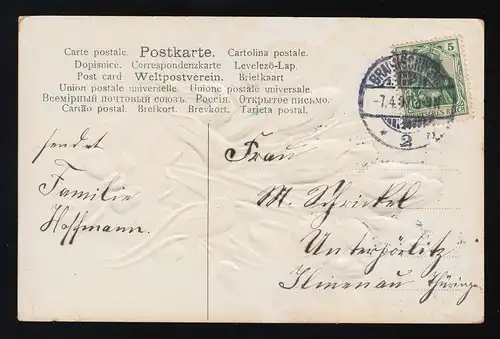 Carte postale. Postkarte. Cartolina postale.
Dopisnice. Correspondenzkarte. Levelező-Lap.
Post card Weltpostverein. Briefkaart
Union postale universelle Unione postale universale.
Всемірный почтовый союзъ. Россія. Открытое письмо.
Cartão postal. Brefkort. Brevkort. Tarjeta postal.
5
2
sendet
Familie
Hoffmann.
Frau
M. Schrickel
Unterpörlitz
Ilmenau Thüringen